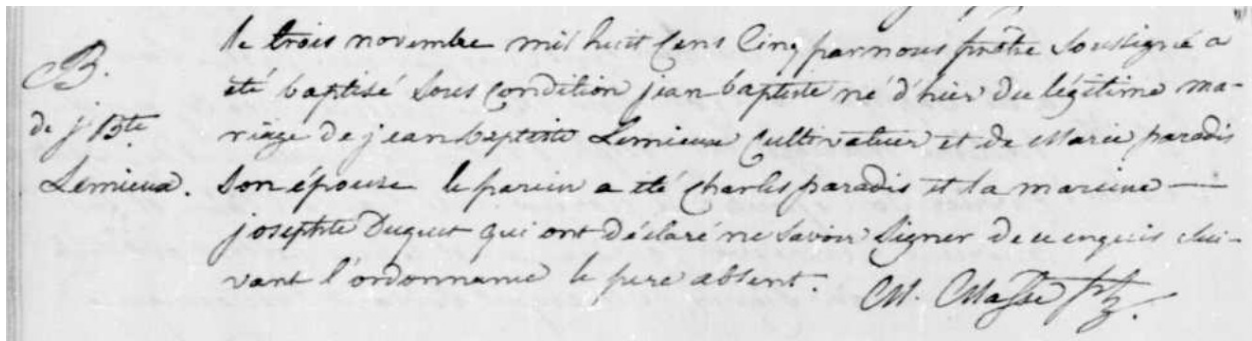 B.
de j Bte
Lemieux.
le trois novembre mil huit cens Cinq par nous prêtre Soussigné a
été baptisé Sous Condition jean baptiste né d'hier du légitime ma-
riage de jean baptiste Lemieux Cultivateur et de Marie paradis
Son épouse le parein a été Charles paradis et la mareine —
josephte Duquet qui ont déclaré ne Savoir Signer de ce enquis Sui-
vant l'ordonnance le pere absent.
M. Masse ptr.